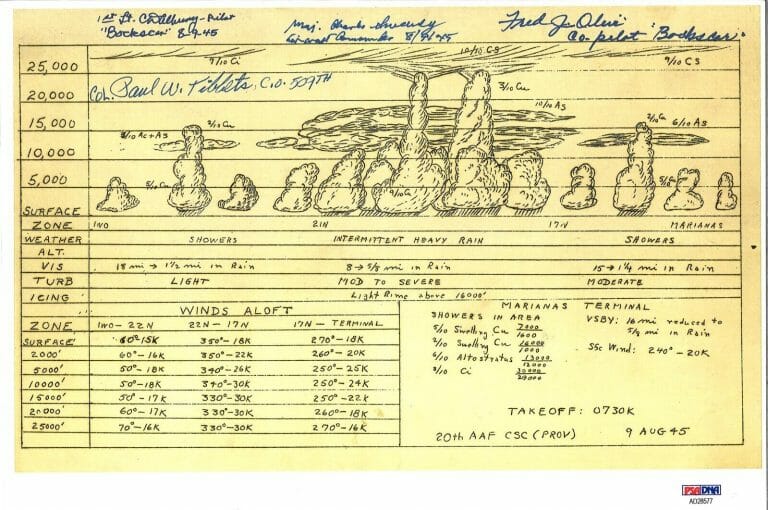 1st Lt. C D Albury - Pilot
"Bockscar" 8-9-45
Maj. Charles Sweeney
8/9/45
Fred J Olivi
Co pilot "Bockscar"
Col. Paul W. Tibbets, C.O. 509TH
25,000
20,000
15,000
10,000
5,000
SURFACE
9/10 Ci
10/10 CS
9/10 CS
3/10 Cu
10/10 As
2/10 Cu
6/10 As
ZONE IWO 21N 17N MARIANAS
WEATHER SHOWERS INTERMITTENT HEAVY RAIN SHOWERS
ALT.
VIS 18 mi → 1½ mi in Rain 8 → 5/8 mi in Rain 15 → 1¼ mi in Rain
TURB LIGHT MOD TO SEVERE MODERATE
ICING Light Rime above 16000'
WINDS ALOFT
ZONE IWO - 22N 22N - 17N 17N - TERMINAL
SURFACE' 60° 15K 350° - 18K 270° - 18K
2000' 60° - 16K 350° - 22K 260° - 20K
5000' 50° - 18K 340° - 26K 250° - 25K
10000' 50° - 18K 340° - 30K 250° - 24K
15000' 50° - 17K 330° - 30K 250° - 22K
20000' 60° - 17K 330° - 30K 260° - 18K
25000' 70° - 16K 330° - 30K 270° - 16K
MARIANAS TERMINAL
SHOWERS IN AREA
5/10 Swelling Cu 7000
1600
2/10 Swelling Cu 16000
1000
6/10 Altostratus 13000
12000
3/10 Ci 30000
VSBY: 16 mi reduced to
5/8 mi in Rain
Sfc Wind: 240° - 20K
TAKEOFF: 0730K
20th AAF CSC (PROV) 9 AUG 45
PSA/DNA